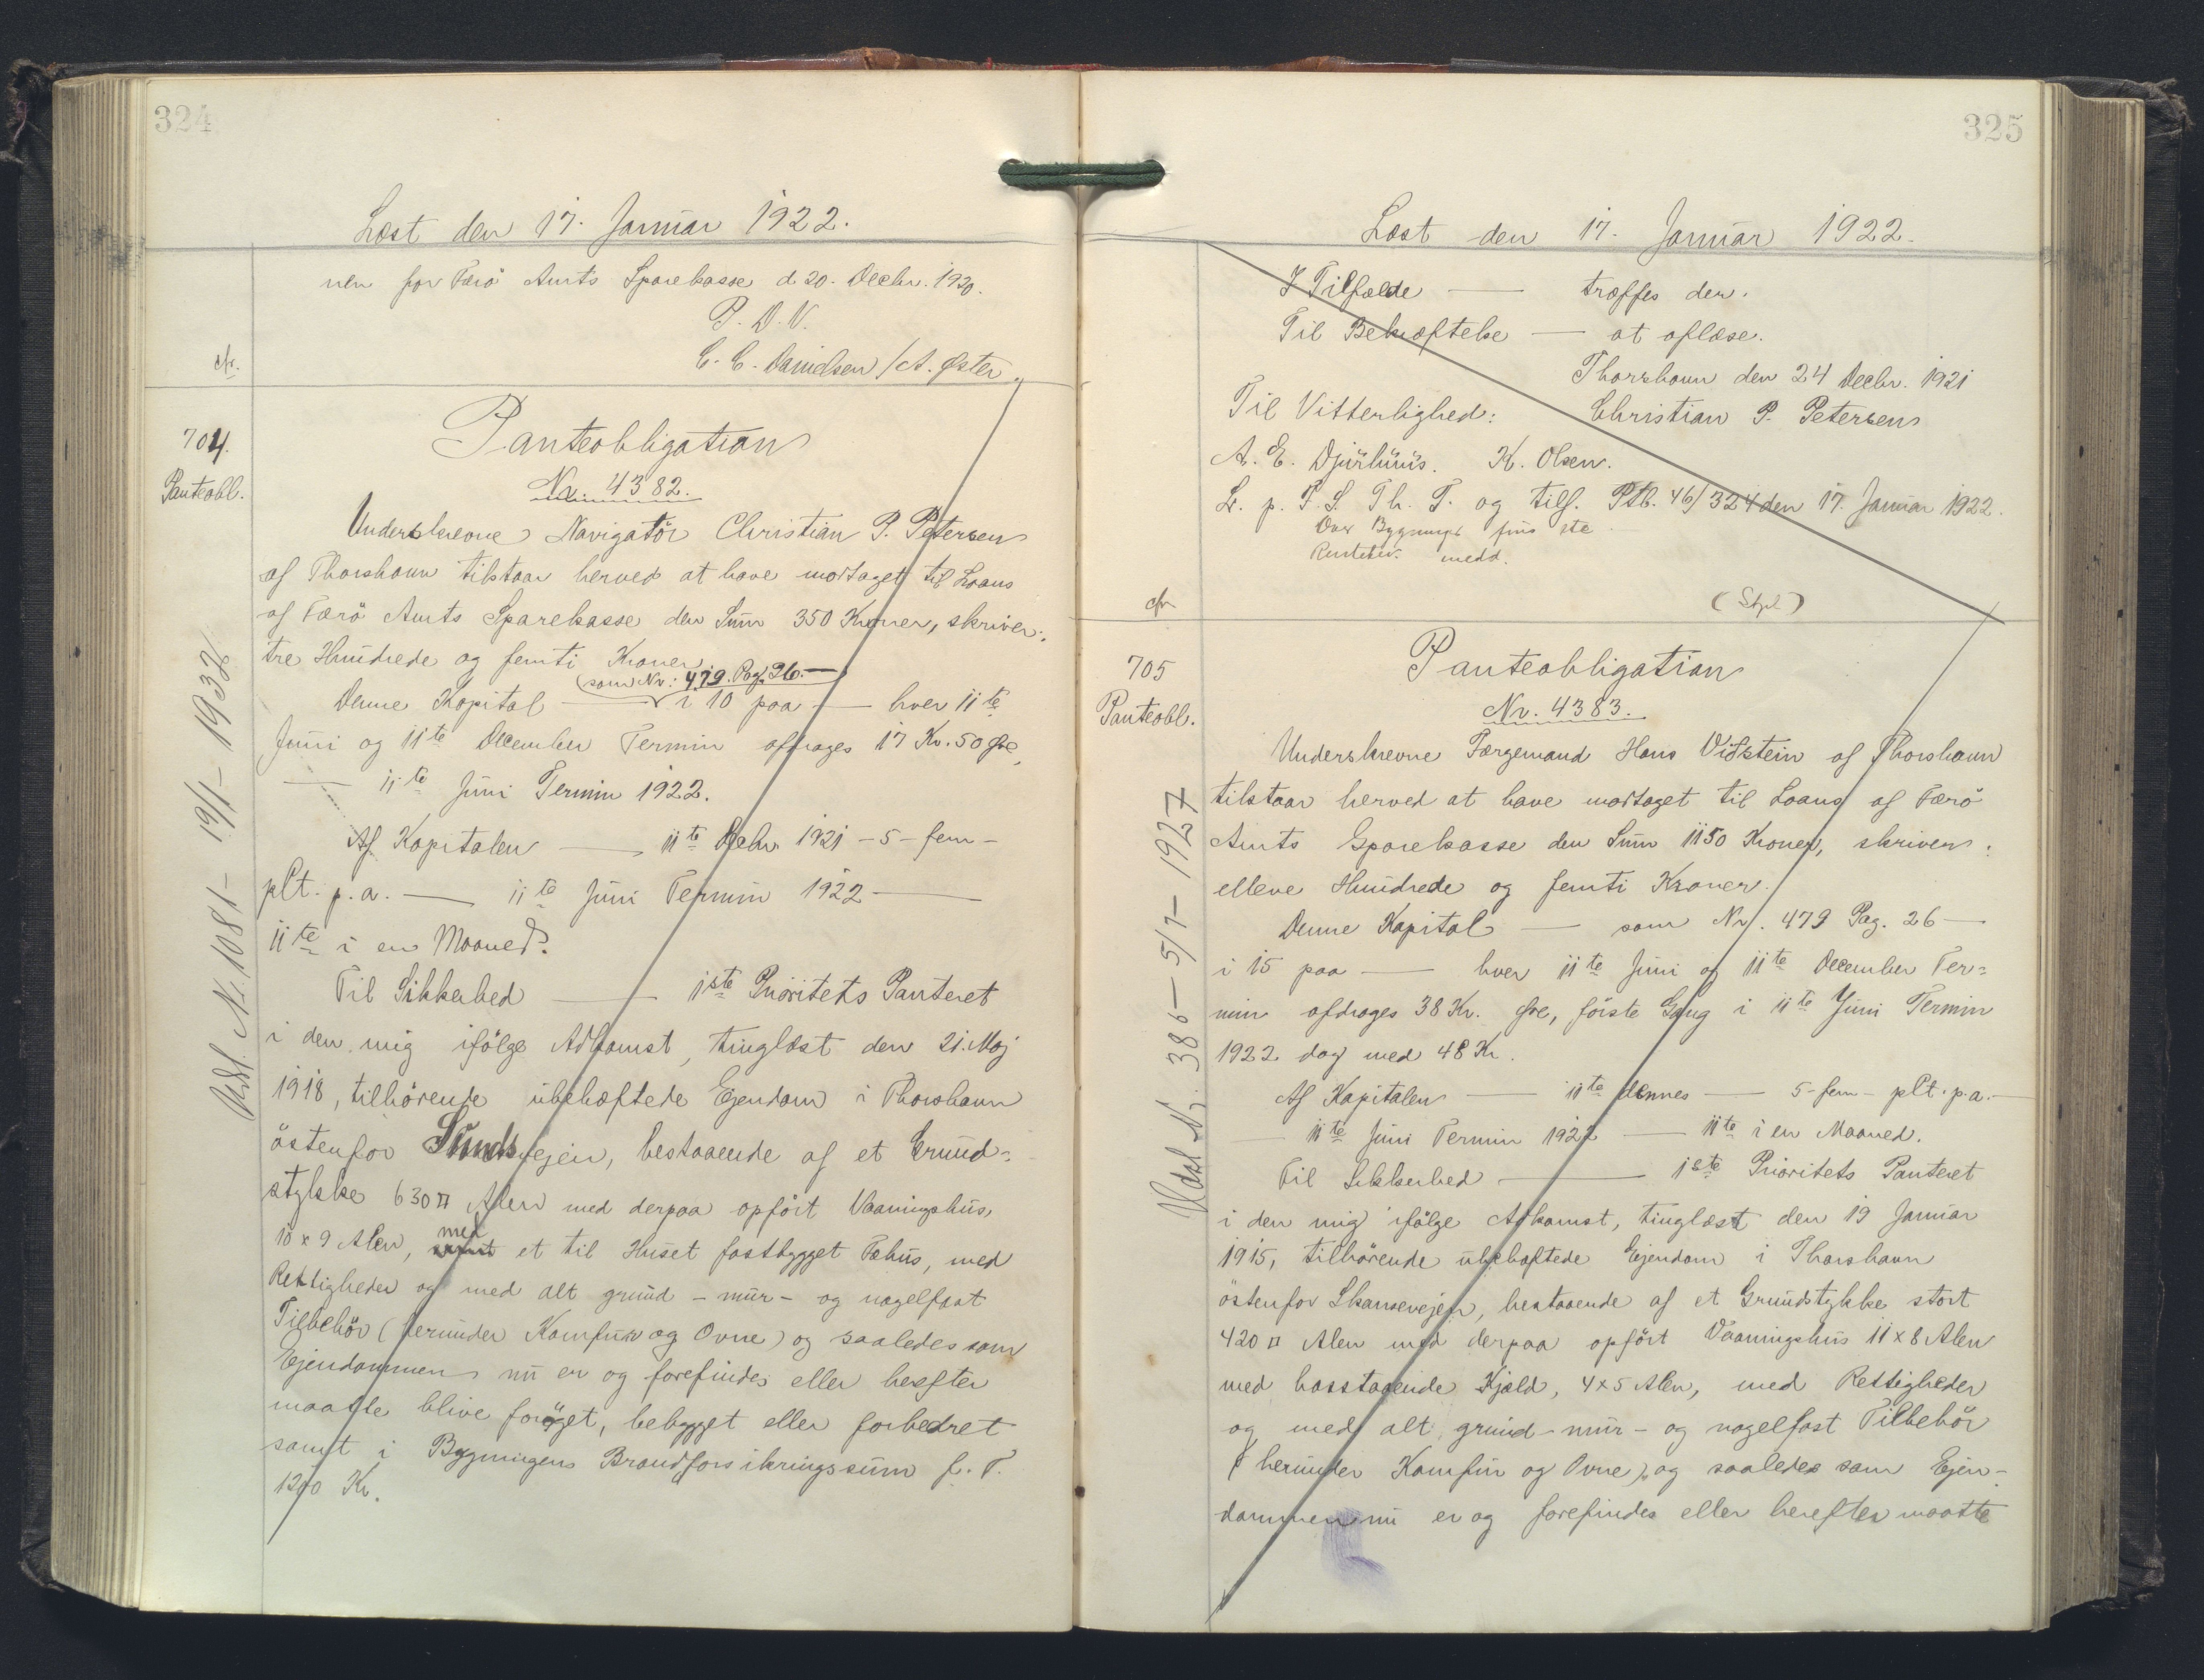 324
Læst den 17. Januar 1922.
nen for Færö Amts Sparekasse d. 20. Decbr. 1920.
P. D. V.
C. C. Danielsen / A. Øster.
cfr.
704.
Panteobl.
Panteobligation
Nr. 4382.
Underskrevne Navigatör Christian P. Petersen
af Thorshavn tilstaar herved at have modtaget til Laans
af Færö Amts Sparekasse den Sum 350 Kroner, skriver:
tre Hundrede og femti Kroner.
(som Nr: 479. Pag. 26.—)
Denne Kapital — i 10 paa — hver 11te
Juni og 11te December Termin afdrages 17 Kr. 50 Øre,
— 11te Juni Termin 1922.
Af Kapitalen — 11te Decbr. 1921 - 5 - fem -
pCt. p. a. — 11te Juni Termin 1922 —
11te i en Maaned.
Til Sikkerhed — 1ste Prioritets Panteret
i den mig ifölge Adkomst, tinglæst den 21. Maj
1918, tilhörende ubehæftede Ejendom i Thorshavn
östenfor Sundsvejen, bestaaende af et Grund-
stykke 630 □ Alen med derpaa opfört Vaaningshus,
10 x 9 Alen, med et til Huset fastbygget Fæhus, med
Rettigheder og med alt grund - mur - og nagelfast
Tilbehör (herunder Komfur og Ovne) og saaledes som
Ejendommen nu er og forefindes eller herefter
maatte blive foröget, bebygget eller forbedret
samt i Bygningens Brandforsikringssum f. T.
1200 Kr.
Udsl. Nr. 1081 - 19/1 - 1932
325
Læst den 17. Januar 1922.
I Tilfælde — træffes der.
Til Bekræftelse — at aflæse.
Thorshavn den 24 Decbr. 1921
Til Vitterlighed: Christian P. Petersen
A. E. Djurhuus. K. Olsen.
L. p. F. S. Th. T. og tilf. Ptb. 46/324 den 17. Januar 1922.
Bygninger
medd.
cfr
(Stpl.)
705
Panteobl.
Panteobligation
Nr. 4383.
Underskrevne Færgemand Hans Viðstein af Thorshavn
tilstaar herved at have modtaget til Laans af Færö
Amts Sparekasse den Sum 1150 Kroner, skriver:
elleve Hundrede og femti Kroner.
Denne Kapital — som Nr. 479 Pag. 26 —
i 15 paa — hver 11te Juni og 11te December Ter-
min afdrages 38 Kr. Øre, förste Gang i 11te Juni Termin
1922 dog med 48 Kr.
Af Kapitalen — 11te dennes — 5 - fem - pCt. p. a. —
— 11te Juni Termin 1922 — 11te i en Maaned.
Til Sikkerhed — 1ste Prioritets Panteret
i den mig ifölge Adkomst, tinglæst den 19 Januar
1915, tilhörende ubehæftede Ejendom i Thorshavn
östenfor Skansevejen, bestaaende af et Grundstykke stort
420 □ Alen med derpaa opfört Vaaningshus 11 x 8 Alen
med hosstaaende Kjald, 4 x 5 Alen, med Rettigheder
og med alt grund - mur - og nagelfast Tilbehör
(herunder Komfur og Ovne), og saaledes som Ejen-
dommen nu er og forefindes eller herefter maatte
Udsl. Nr. 386 - 5/7 - 1927